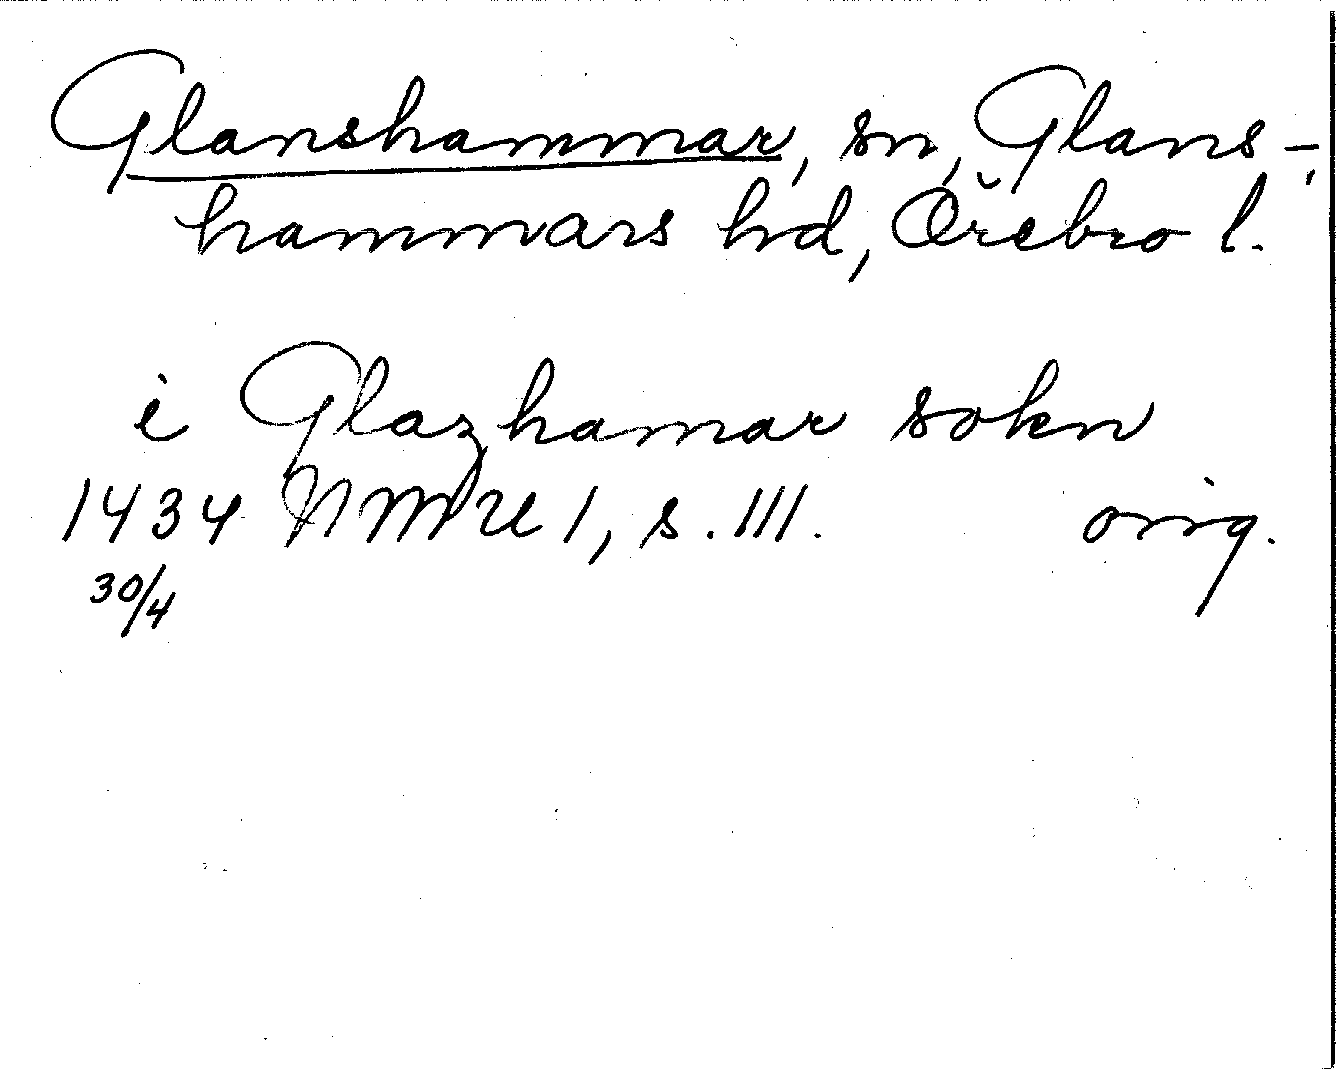 Glanshammar, sn, Glans-
hammars hd, Örebro l.
i Glazhamar sokn
1434 NMU 1, s. 111. orig.
30/4